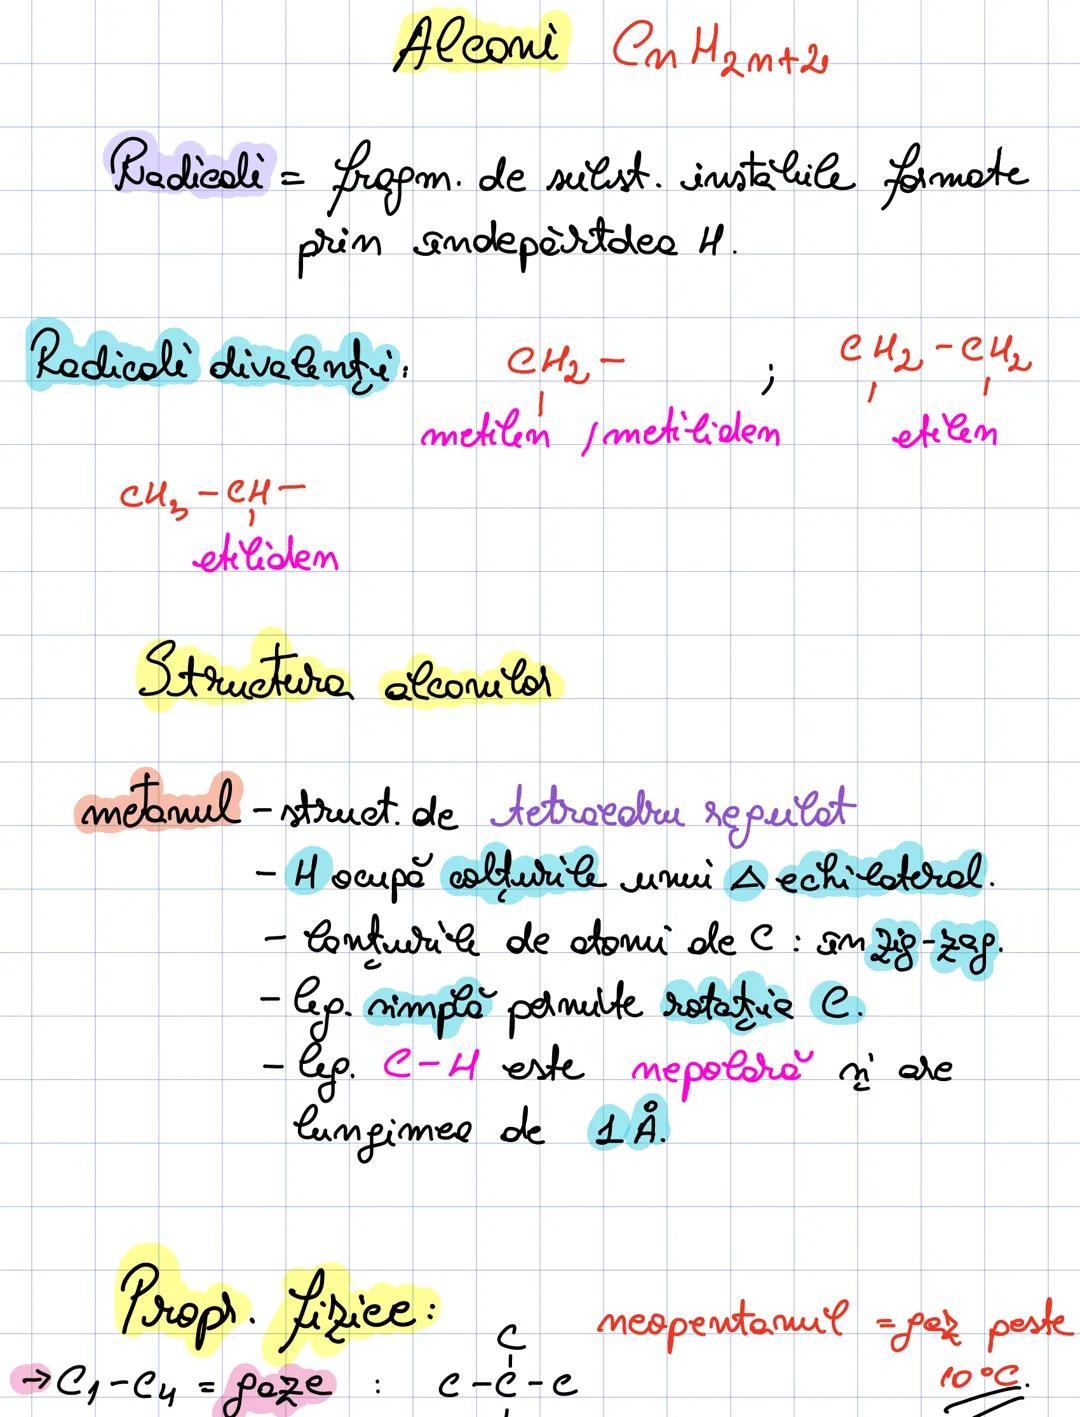 Alcani CnH2n+2
Radicali = fragm. de subst. instabile formate
prin îndepărtdea H.
Radicali divalenți: CH2- ; CH2-CH2
metilen / metiliden etilen
CH3-CH-
etiliden
Structura alcanilor
metanul - struct. de tetraedru regulat
- H ocupă colțurile unui Δ echilateral.
- lanțurile de atomi de C : în zig-zag.
- leg. simplă permite rotația C.
- leg. C-H este nepolară și are
lungimea de 1 Å.
Propr. fizice:
C
neopentanul = gaz peste
→ C1-C4 = gaze : C-C-C
10°C.